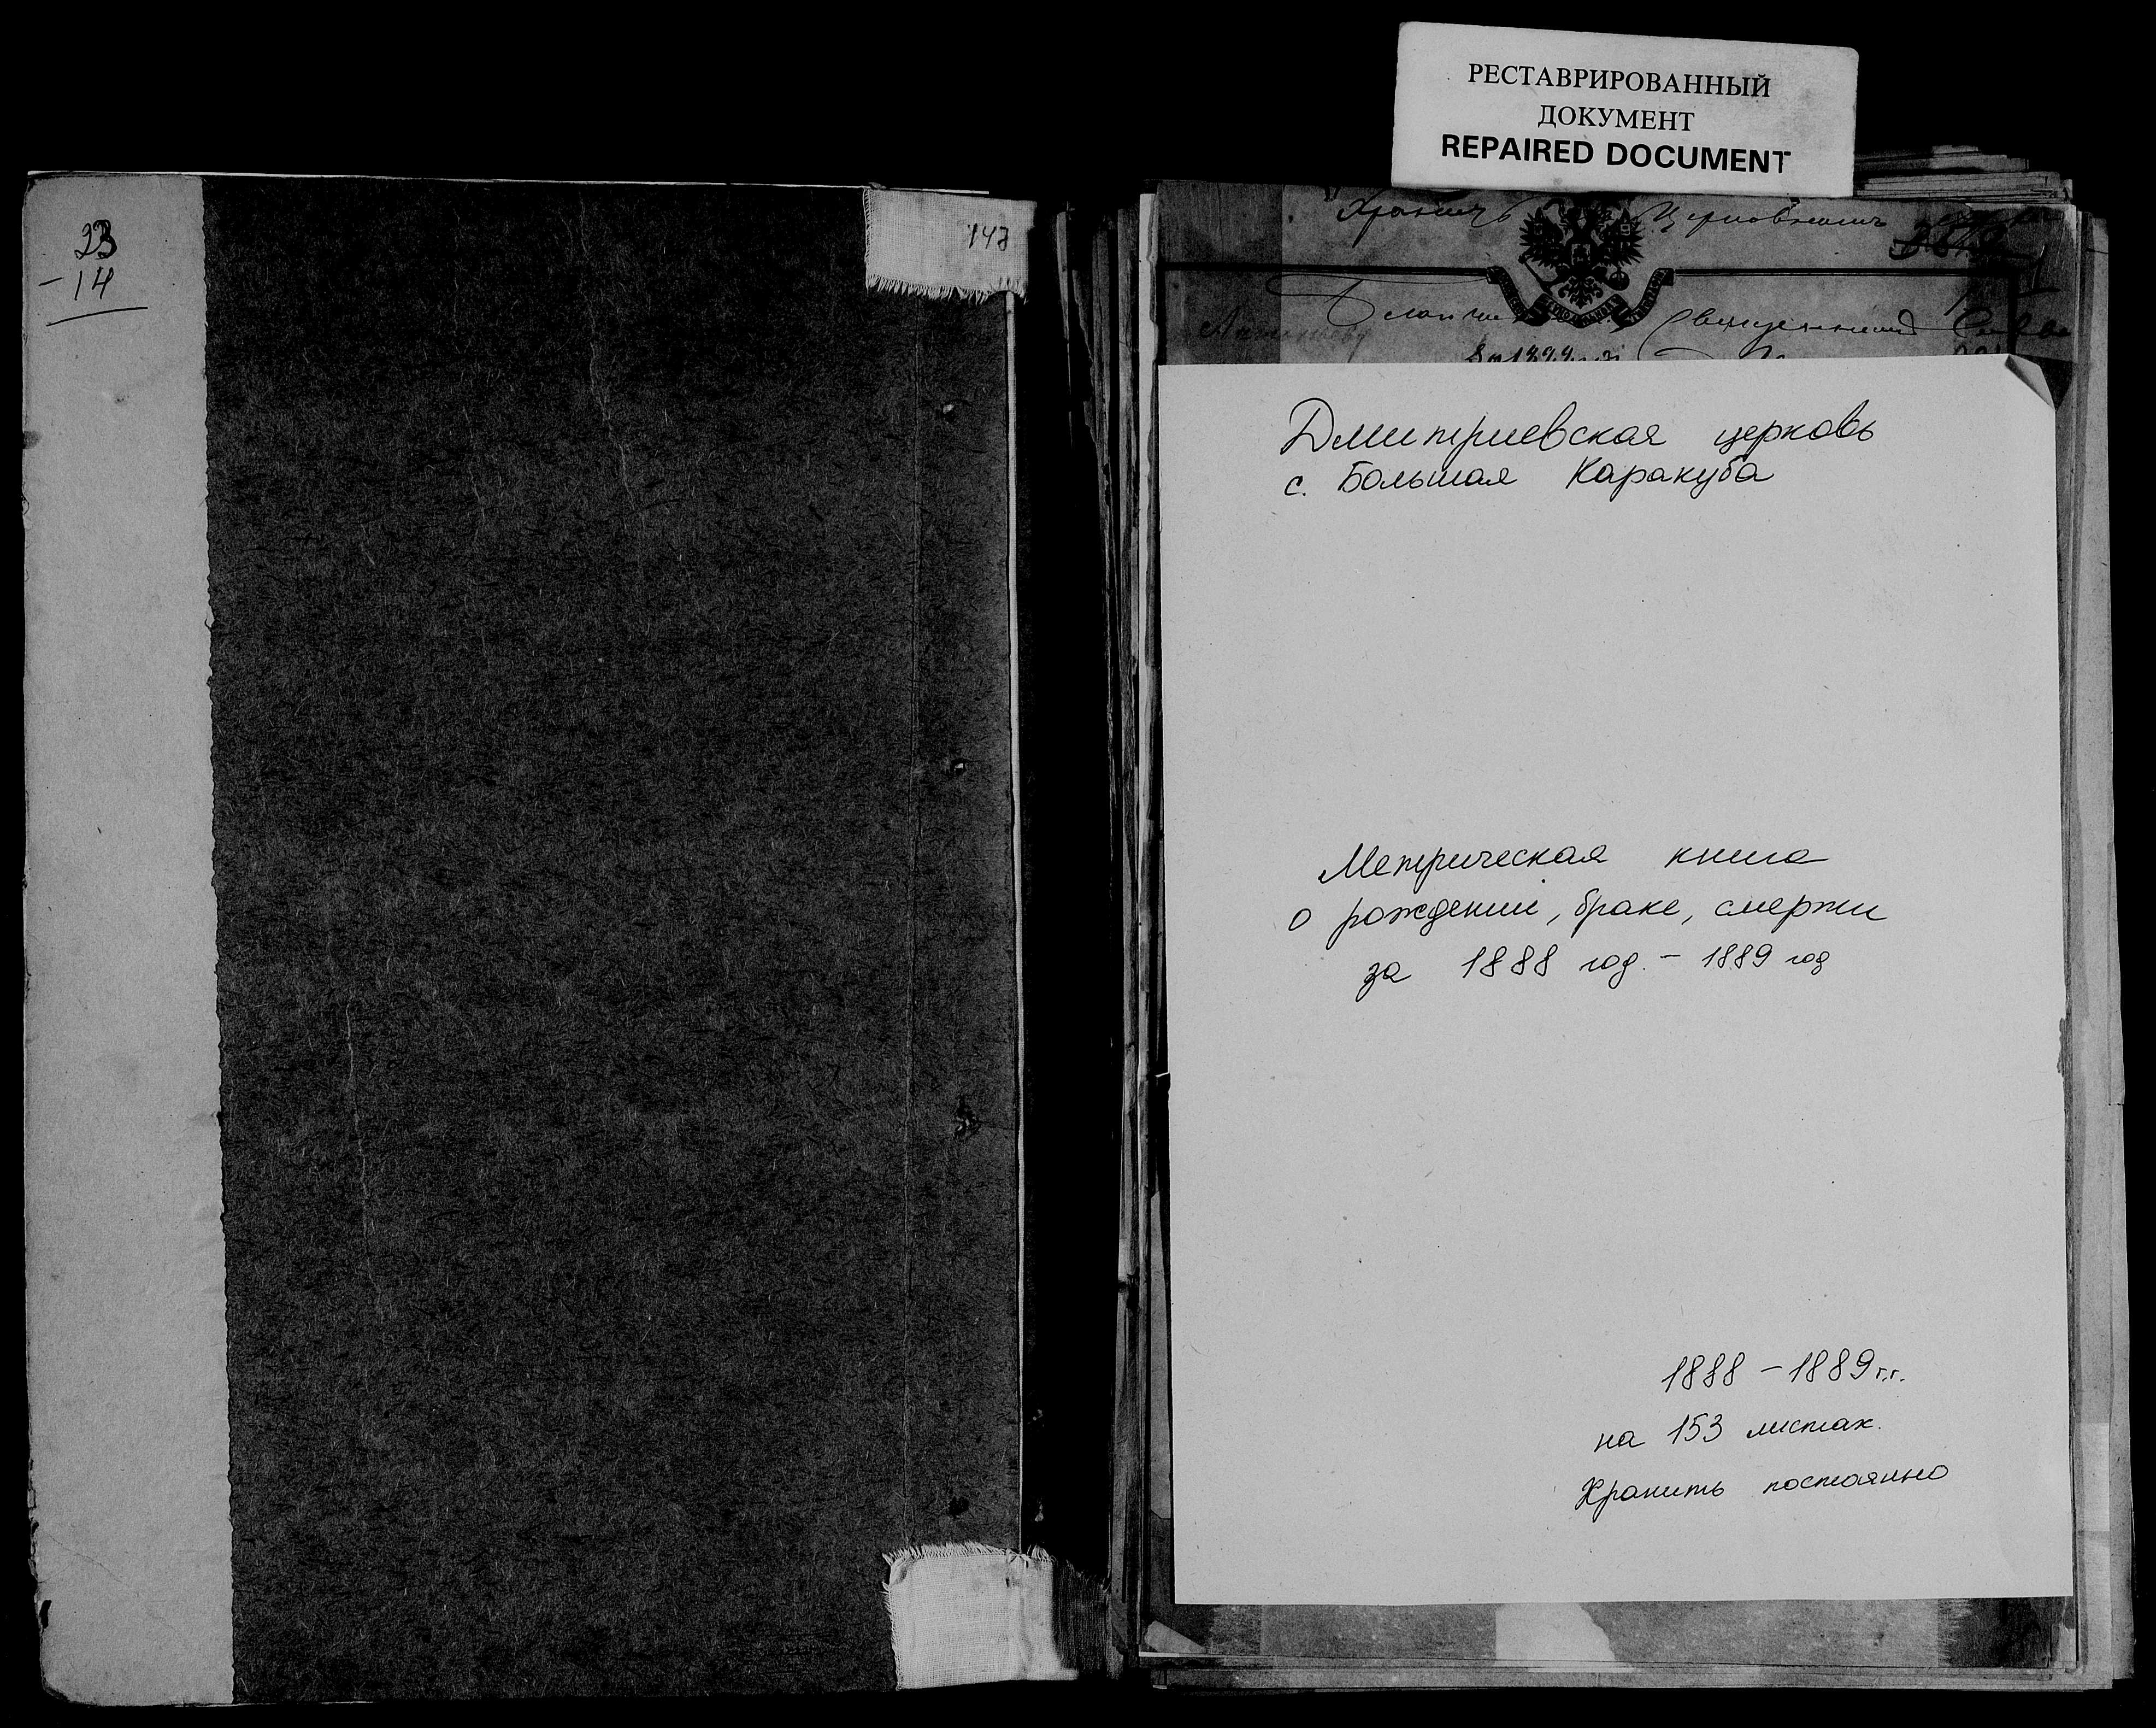 23
- 14
147
РЕСТАВРИРОВАННЫЙ
ДОКУМЕНТ
REPAIRED DOCUMENT
Хранить Церковнымъ
Дмитриевская церковь
с. Большая Каракуба
Метрическая книга
о рождении, браке, смерти
за 1888 год. - 1889 год
1888 - 1889 г.г.
на 153 листах.
Хранить постоянно